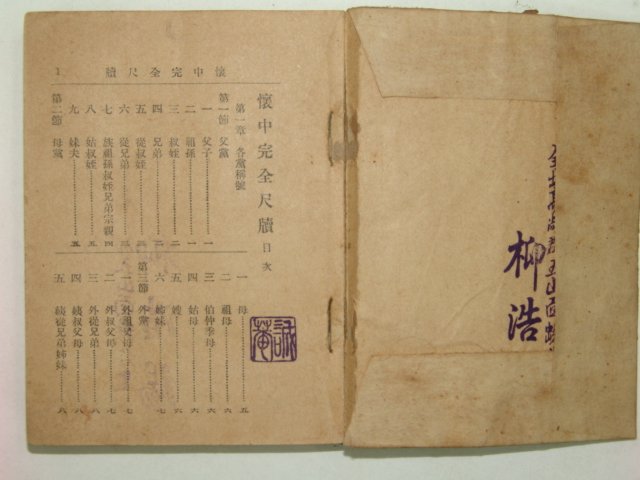 懷中完全尺牘
1
懷中完全尺牘 目次
第一章 各黨稱號
第一節 父黨
一 父子 一
二 祖孫 一
三 叔姪 二
四 兄弟 二
五 從叔姪
六 從兄弟
七 族祖孫叔姪兄弟宗親 四
八 姑叔姪 五
九 妹夫 五
第二節 母黨
一 母 五
二 祖母 六
三 伯仲季母 六
四 姑母 六
五 嫂 六
六 姊妹 七
第三節 外黨
一 外祖父母 七
二 外叔父母 七
三 外從兄弟 八
四 姨叔父母 八
五 姨從兄弟姊妹 八
誠菴
柳浩